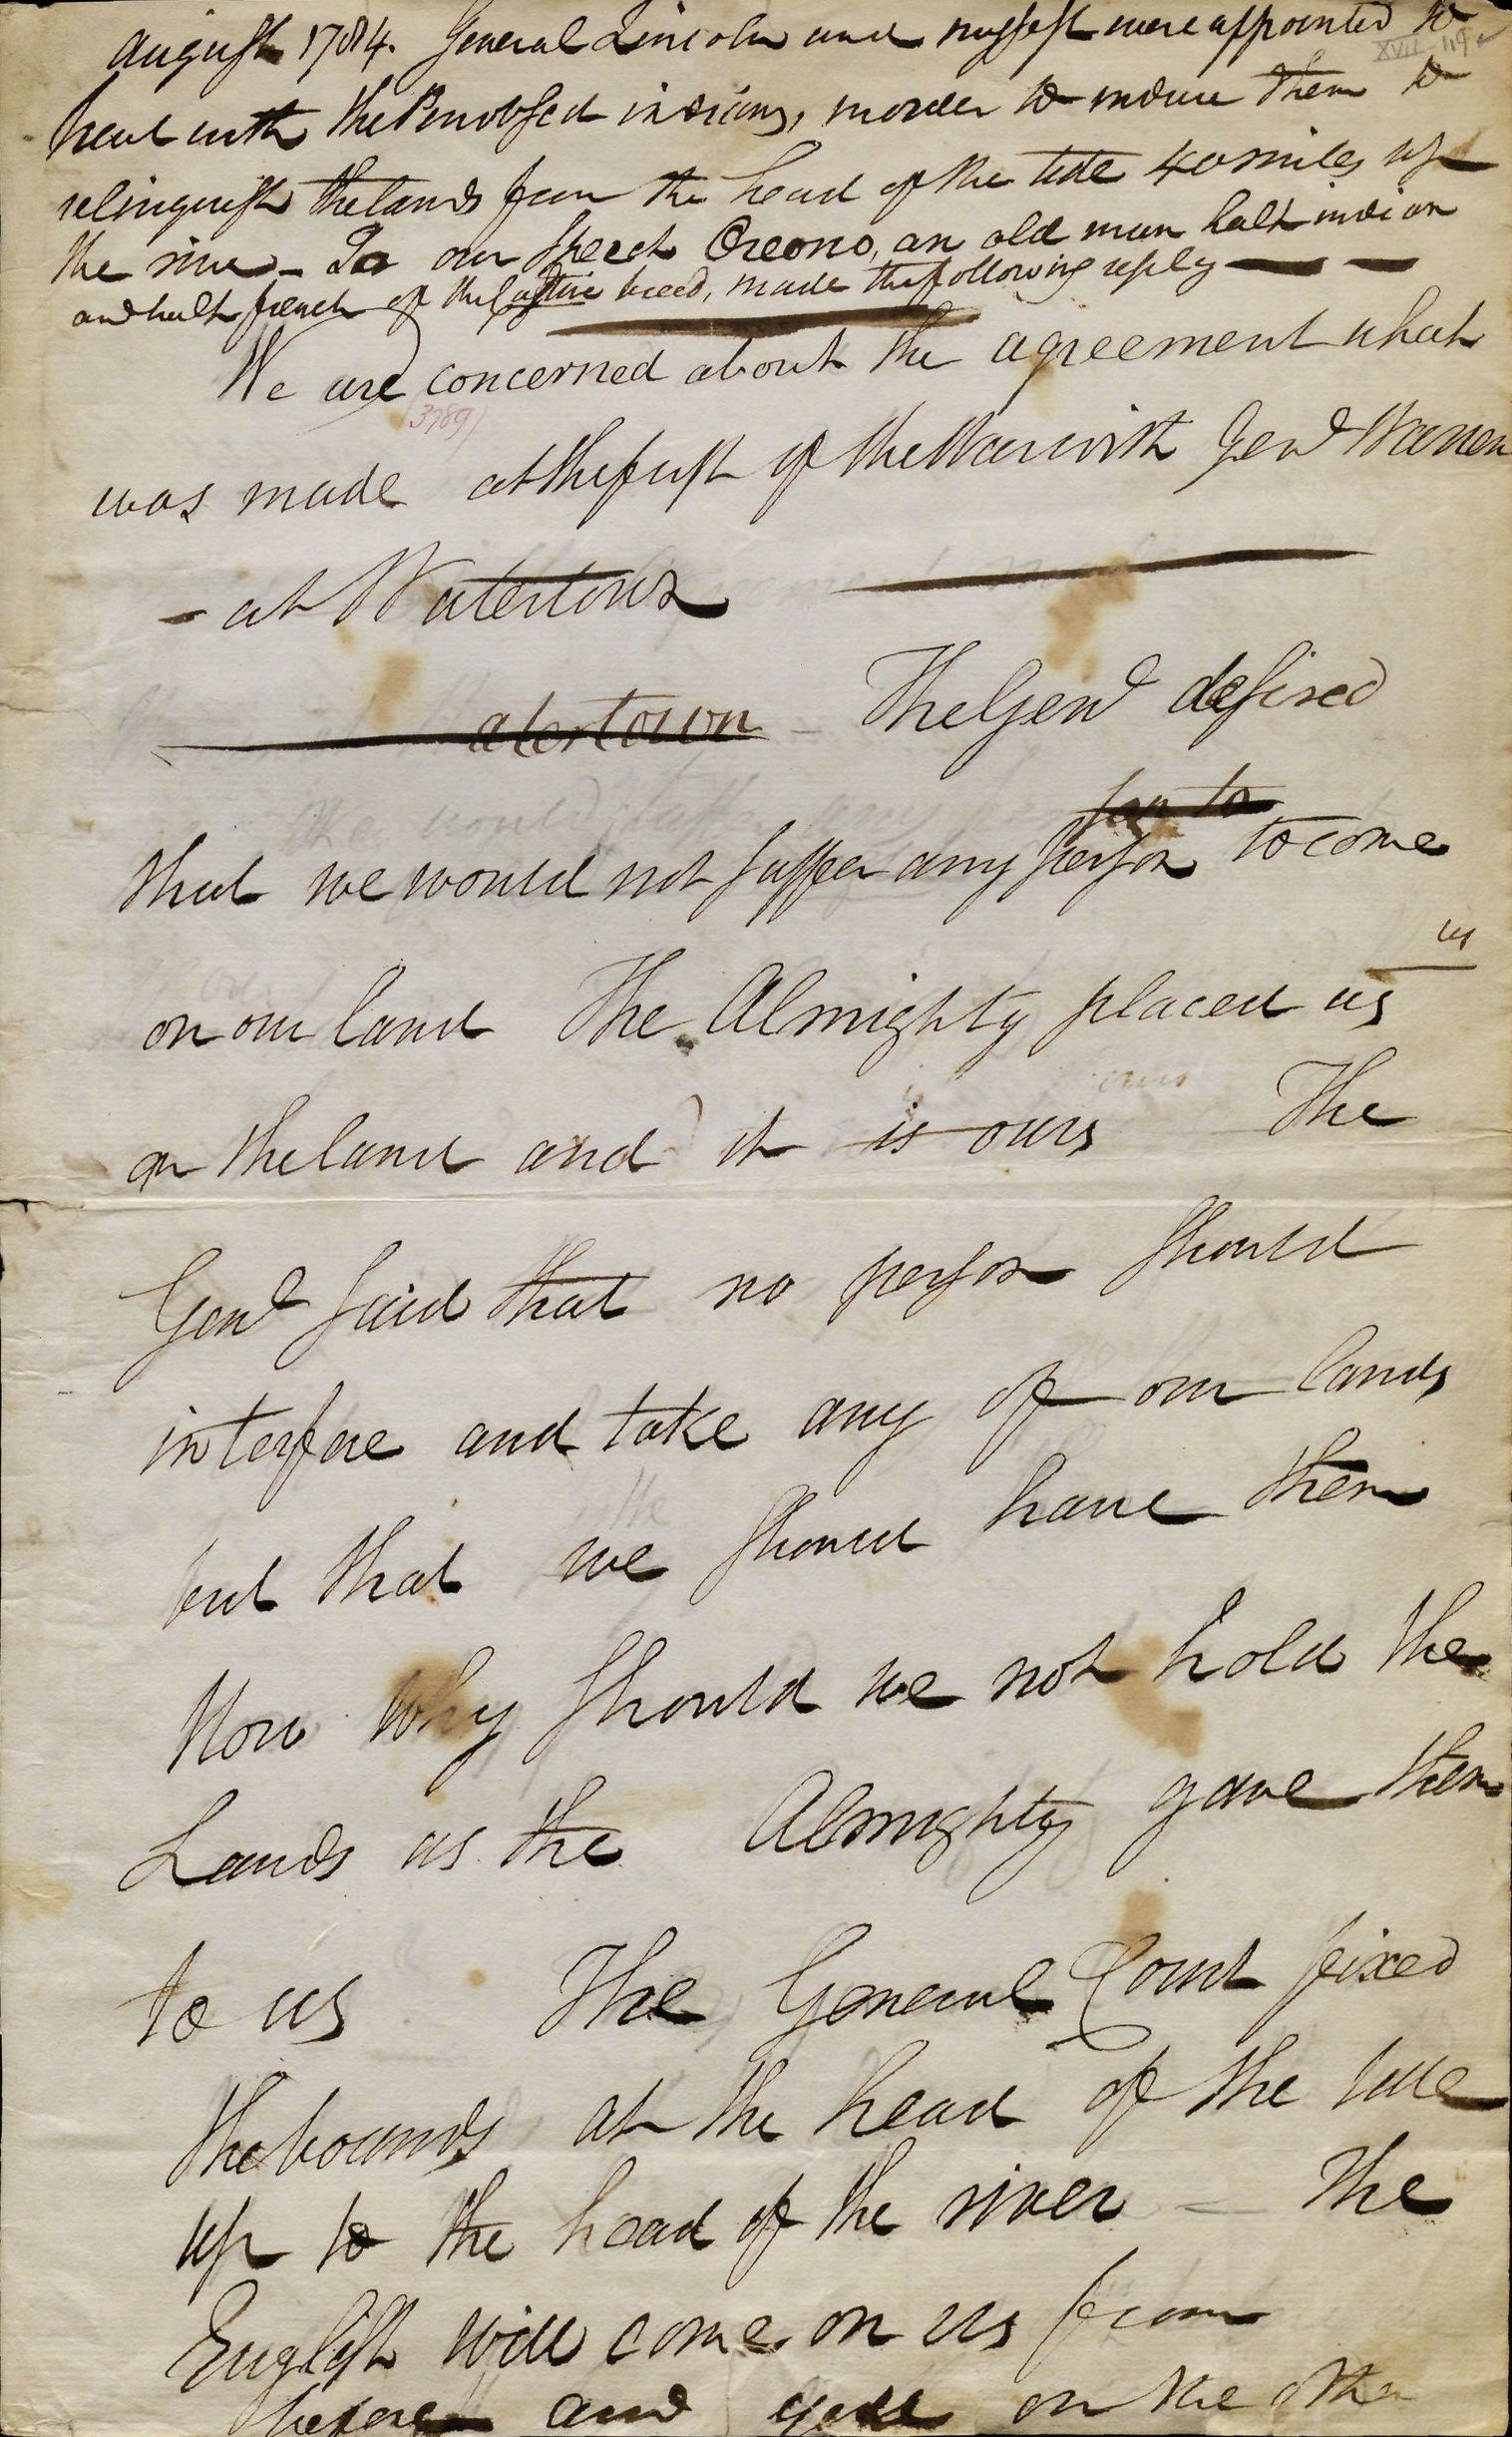 august 1784. General Lincoln and myself were appointed to
XVII-119
treat with the Penobscot indians, in order to induce them to
relinquish the lands from the head of the tide 40 miles up
the river – To our speech Oreono, an old man half indian
and half french of the Castine breed, made the following reply — —
We are concerned about the agreement what
(3789)
was made at the first of the War with Genl Warren
- at Watertown
atertown – The Genl desired
that we would not suffer any person to come
us
on our land The Almighty placed us
on the land and it is ours The
Genl said that no person should
interfere and take any of our lands
but that we should have them
Now why should we not hold the
Lands as the Almighty gave them
to us The General Court fixed
the bounds at the head of the tide
up to the head of the river – The
English will come on us from
before and on the other